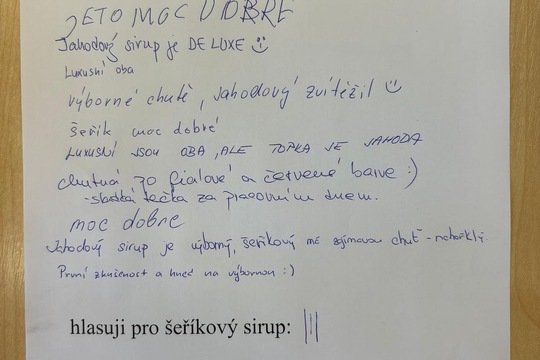 JE TO MOC DOBRÉ
Jahodový sirup je DE LUXE
Luxusní oba
výborné chutě, jahodový zvítězil
šeřík moc dobré
LUXUSNÍ JSOU OBA, ALE TOPKA JE JAHODA
chutná po fialové a červené barvě :)
- sladká tečka za pracovním dnem.
moc dobre
Jahodový sirup je výborný, šeříkový má zajímavou chuť - nahořklý.
První zkušenost a hned na výbornou :)
hlasuji pro šeříkový sirup: |||